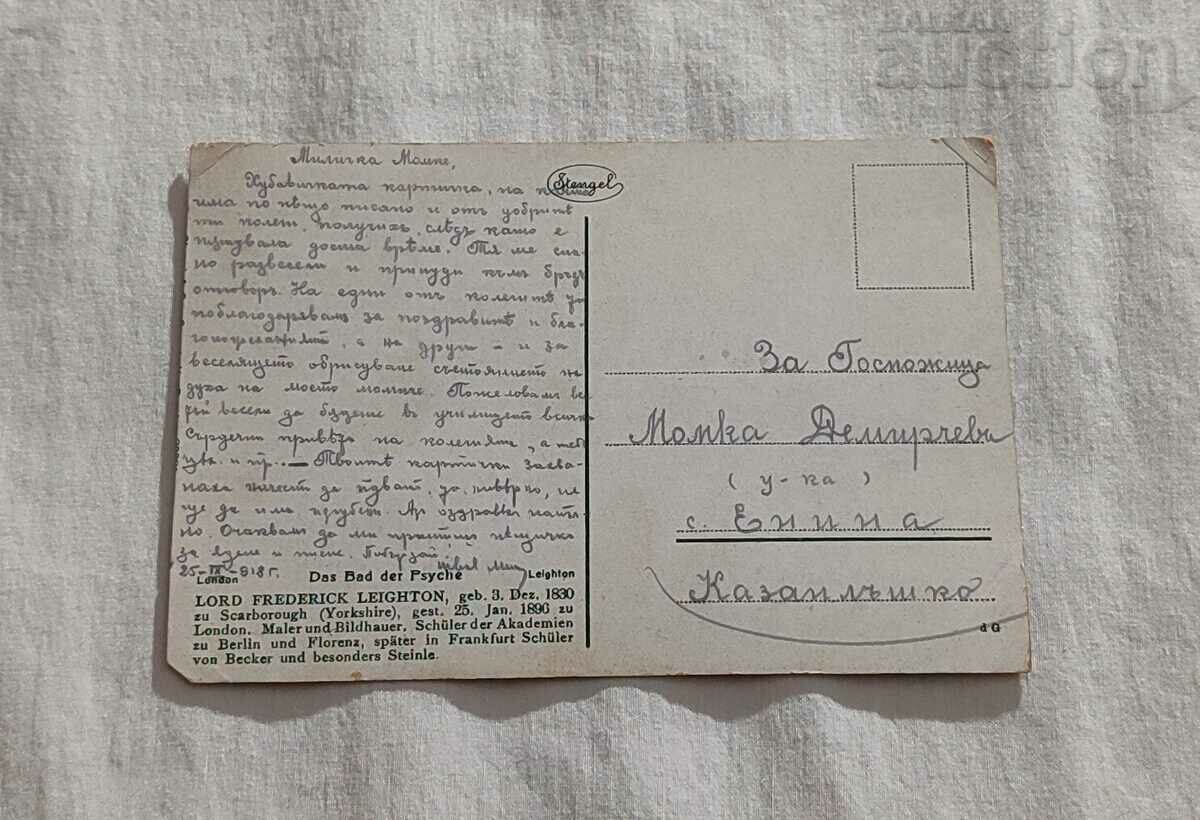 Миличка Момке,
Хубавичката картичка, на която
има по нѣщо писано и отъ добритѣ
ти колеги, получихъ, слѣдъ като е
пѫтувала доста врѣме. Тя ме сил-
но развесели и принуди къмъ бръзъ
отговоръ. На едни отъ колегитѣ ти
поблагодарявамъ за поздравитѣ и бла-
гопожеланията, а на други – и за
веселящето обрисуване състоянието на
духа на моето момиче. Пожелавамъ
весели да бѫдете въ училището всички
Сърдеченъ привѣтъ на колегията, а теб
цѣв. и пр. — Твоитѣ картички захва-
наха начесто да идватъ,
ще да има Аз оздравѣх напъл-
но. Очаквамъ да ми пратишъ нѣщичко
за ядене и писмо. Побързай!
25-IX-918 г.
Stengel
London Das Bad der Psyche Leighton
LORD FREDERICK LEIGHTON, geb. 3. Dez. 1830
zu Scarborough (Yorkshire), gest. 25. Jan. 1896 zu
London. Maler und Bildhauer. Schüler der Akademien
zu Berlin und Florenz, später in Frankfurt Schüler
von Becker und besonders Steinle.
За Госпожица
Момка Демирчева
( у-ка )
с. Енина
Казанлъшко
d G